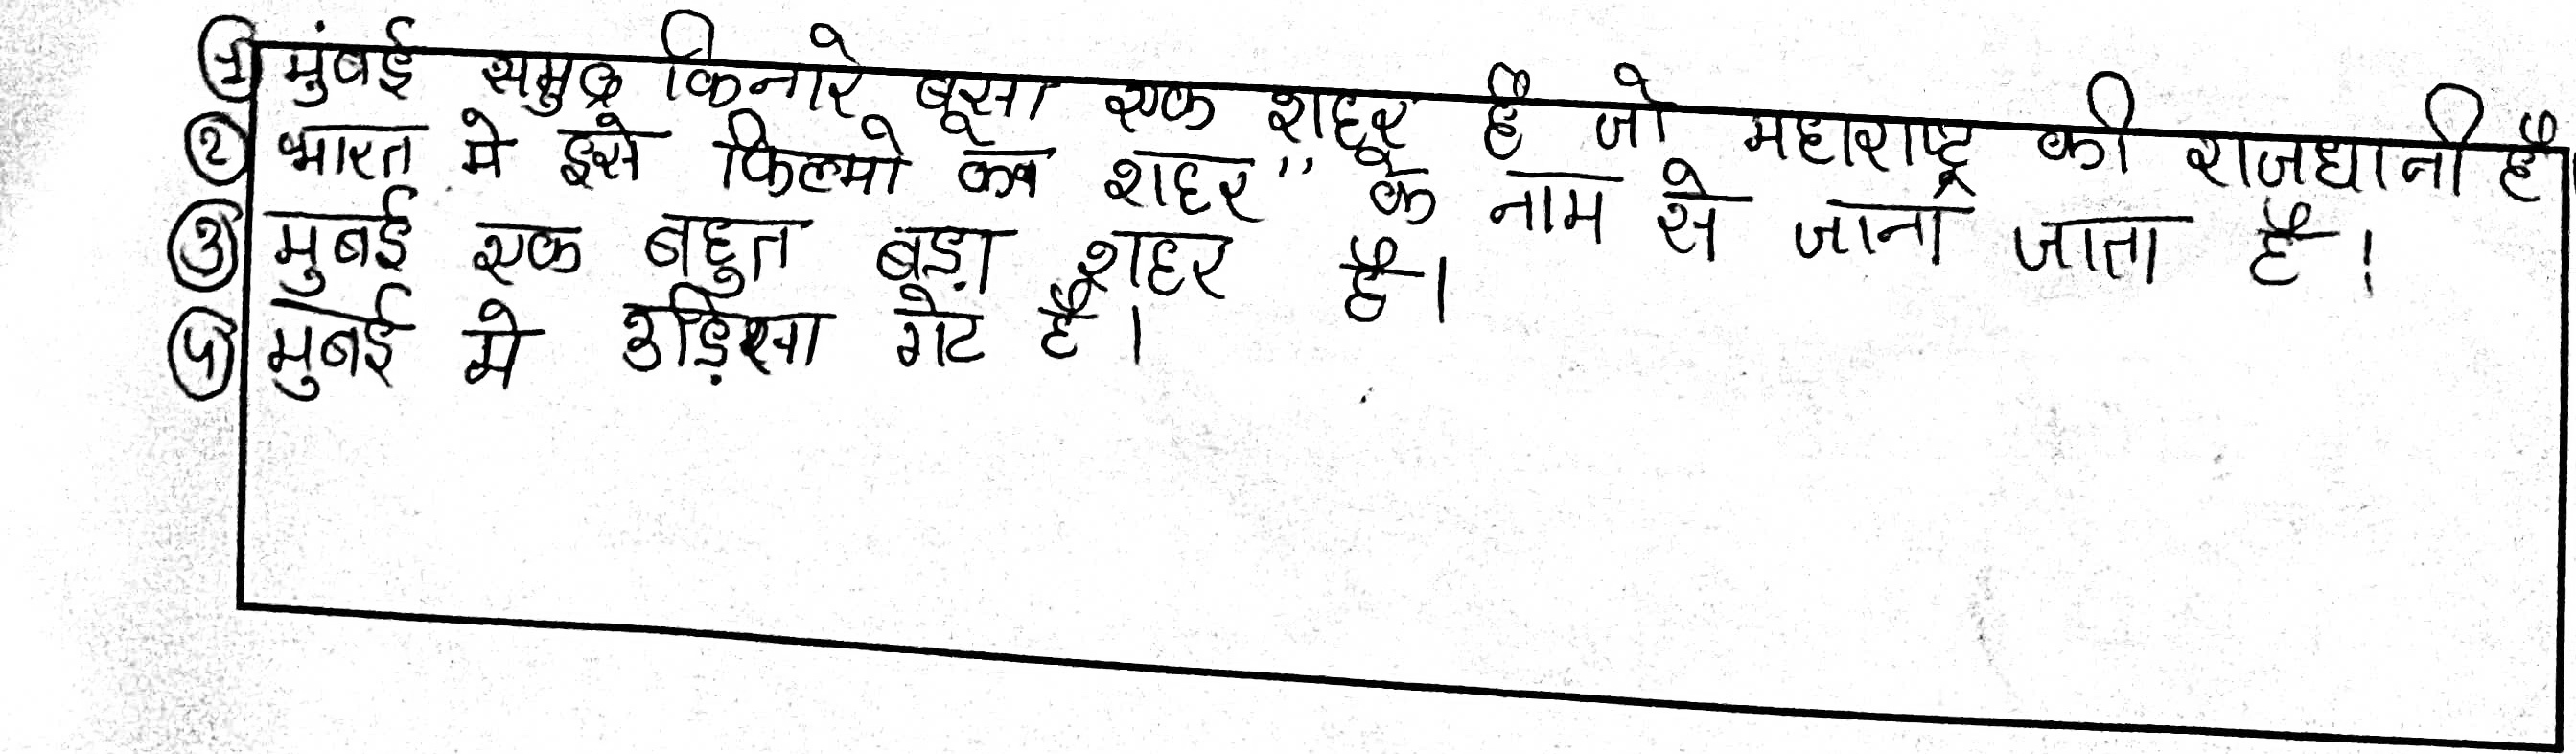 ① मुंबई समुद्र किनारे बसा एक शहर है जो महाराष्ट्र की राजधानी है।
② भारत मे इसे फिल्मो का शहर" के नाम से जाना जाता है।
③ मुबई एक बहुत बड़ा शहर है।
④ मुबई मे उड़िसा गेट है।